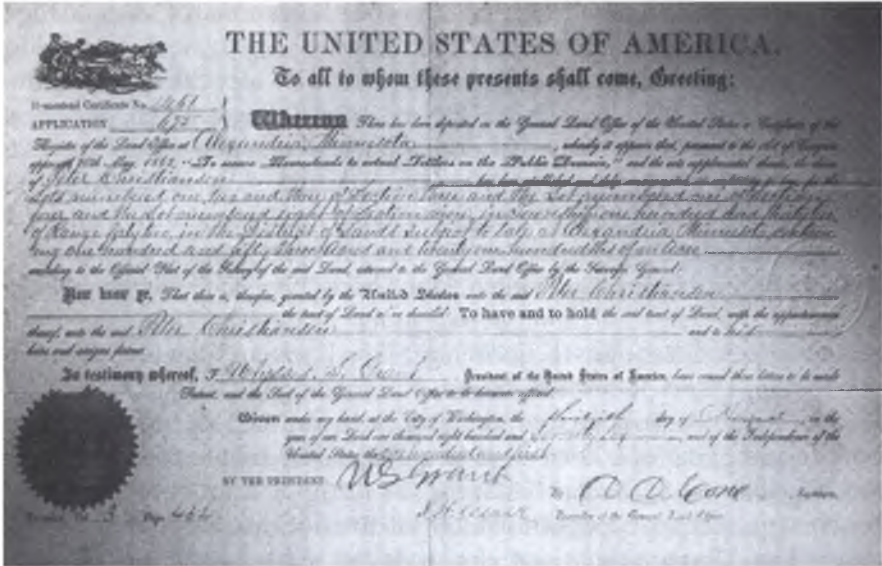 THE UNITED STATES OF AMERICA.
To all to whom these presents shall come, Greeting:
Homestead Certificate No. 1461
APPLICATION 675
Whereas There has been deposited in the General Land Office of the United States a Certificate of the
Register of the Land Office at Alexandria, Minnesota, whereby it appears that, pursuant to the Act of Congress
approved 20th May, 1862, "To secure Homesteads to actual Settlers on the Public Domain," and the acts supplemental thereto, the claim
of Peter Christianson has been established and duly consummated in conformity to law for the
Lots numbered one, two and three of Section four and the Lot numbered one of Section
four and the Lot numbered eight of Section in Township one hundred and thirty
of Range forty two in the District of Lands subject to sale at Alexandria Minnesota, contain
ing one hundred and fifty three acres and twenty one hundredths of an acre
according to the Official Plat of the Survey of the said Land, returned to the General Land Office by the Surveyor General:
Now know ye, That there is, therefore, granted by the United States unto the said Peter Christianson
the tract of Land above described: To have and to hold the said tract of Land, with the appurtenances
thereof, unto the said Peter Christianson and to his
heirs and assigns forever.
In testimony whereof, I Ulysses S. Grant, President of the United States of America, have caused these letters to be made
Patent, and the Seal of the General Land Office to be hereunto affixed.
Given under my hand, at the City of Washington, the day of in the
year of our Lord one thousand eight hundred and Seventy and of the Independence of the
United States the
BY THE PRESIDENT U.S. Grant
By D. D. Cone, Secretary.
Recorder of the General Land Office.
Vol. 3 Page 464